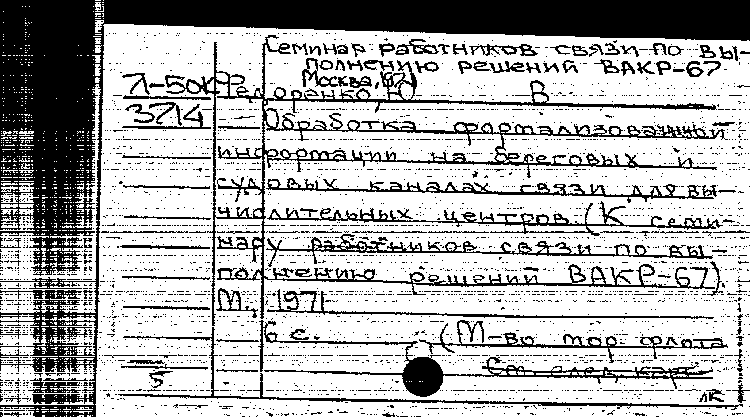 Семинар работников связи по вы-
полнению решений ВАКР-67
Москва, 1971
Л-50К
3714
Федоренко, Ю В
Обработка формализованной
информации на береговых и
судовых каналах связи для вы-
числительных центров (К семи-
нару работников связи по вы-
полнению решений ВАКР-67).
М., 1971
6 с. (М-во мор. флота
См. след. карт.
5